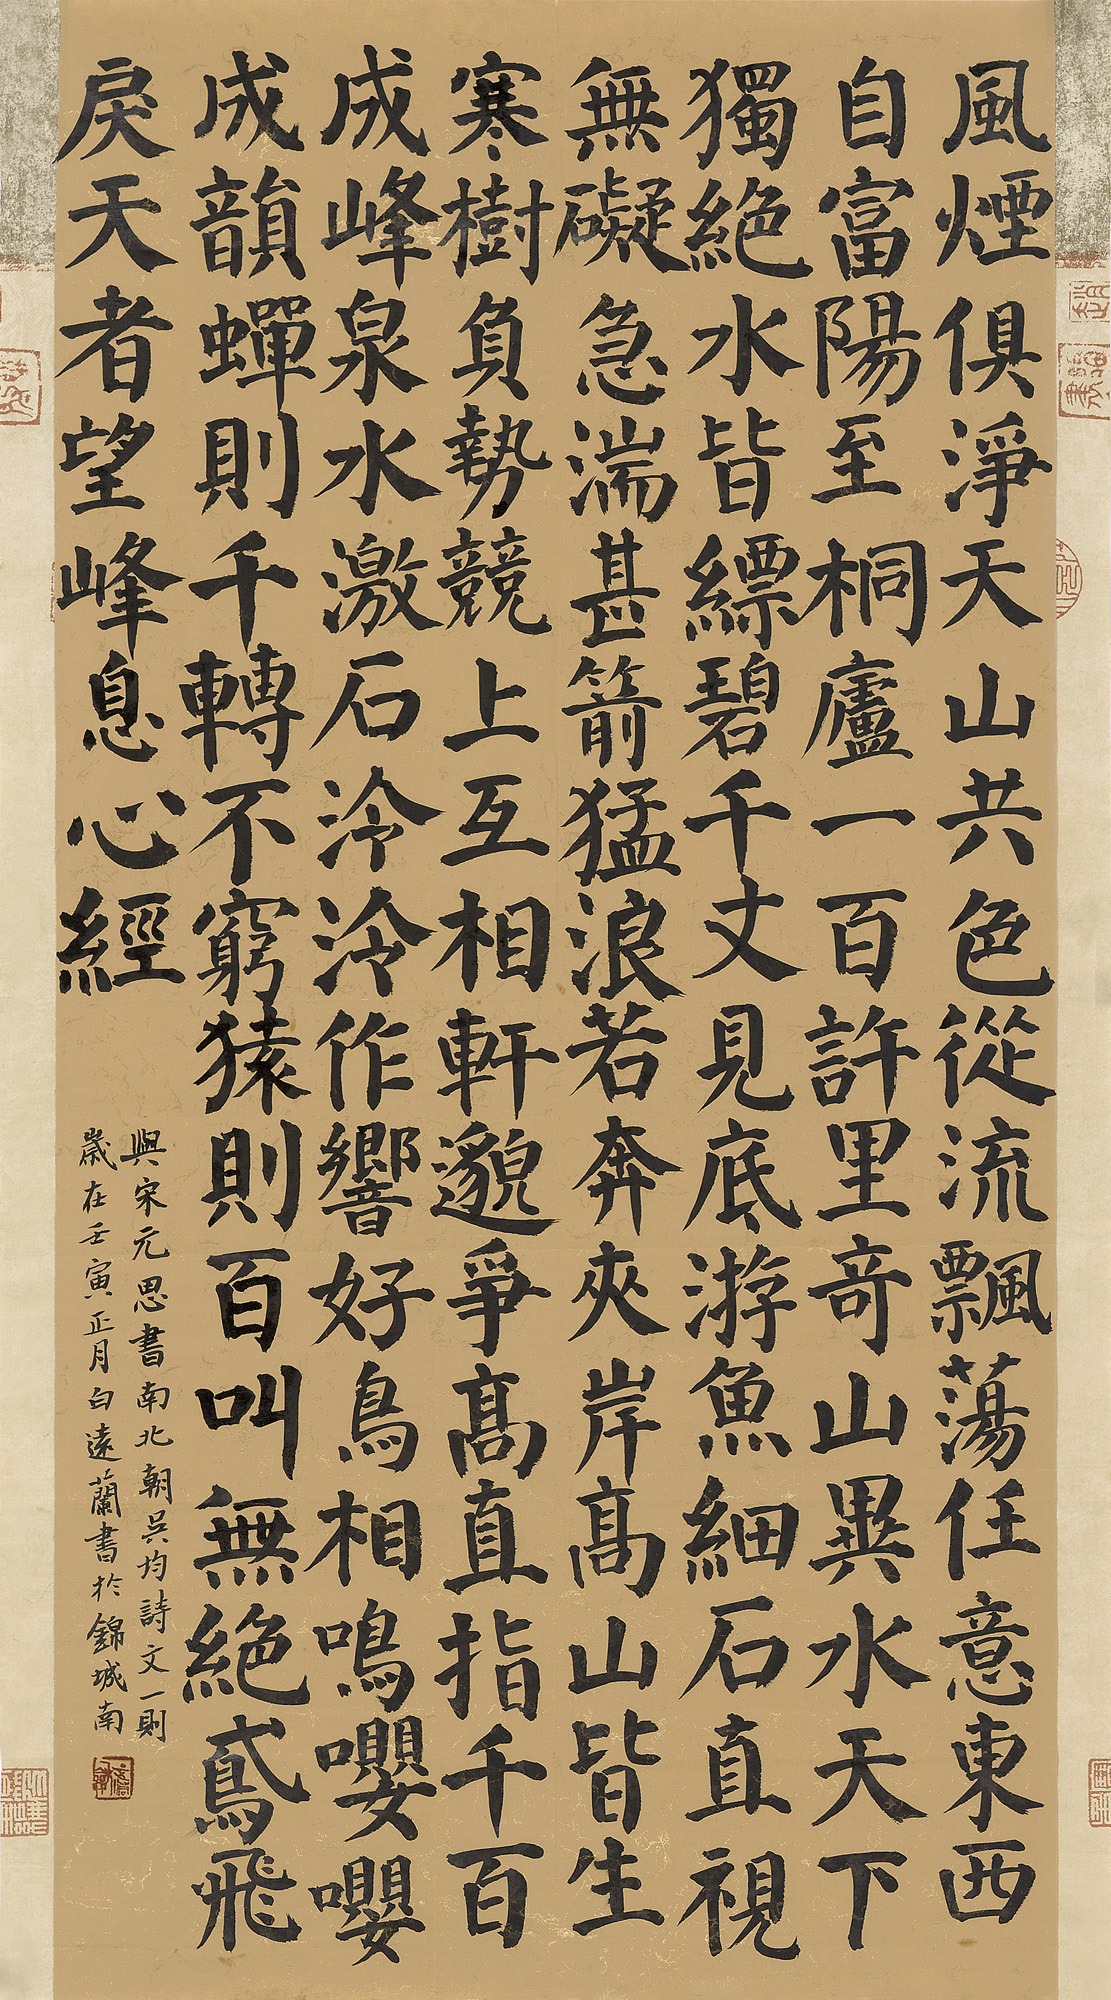 風煙俱淨天山共色從流飄蕩任意東西
自富陽至桐廬一百許里奇山異水天下
獨絕水皆縹碧千丈見底游魚細石直視
無礙急湍甚箭猛浪若奔夾岸髙山皆生
寒樹負勢競上互相軒邈爭髙直指千百
成峰泉水激石泠泠作響好鳥相鳴嚶嚶
成韻蟬則千轉不窮猿則百叫無絕鳶飛
戾天者望峰息心經
與宋元思書南北朝吳均詩文一則
歲在壬寅正月白遠蘭書於錦城南